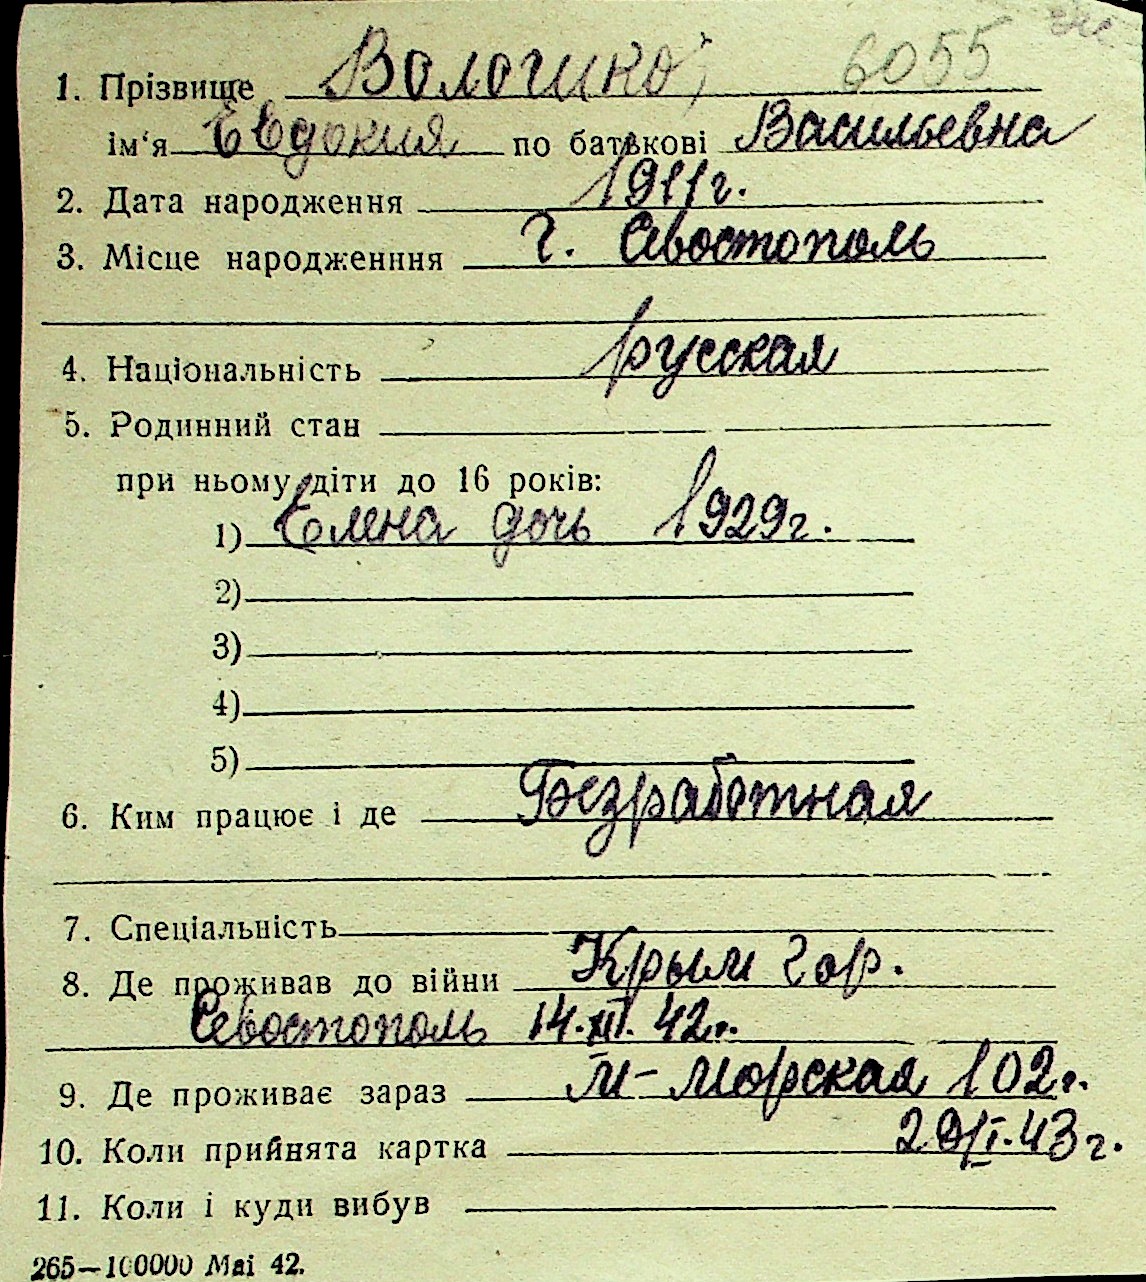 6055
1. Прізвище Волошко
ім‘я Евдокия по батькові Васильевна
2. Дата народження 1911г.
3. Місце народженння г. Севостополь
4. Національність русская
5. Родинний стан
при ньому діти до 16 років:
1) Елена дочь 1929г.
2)
3)
4)
5)
6. Ким працює і де Безработная
7. Спеціальність
8. Де проживав до війни Крым гор.
Севостополь 14.III.42г.
9. Де проживає зараз М-Морская 102г.
10. Коли прийнята картка 29/I.43г.
11. Коли і куди вибув
265—100000 Mai 42.